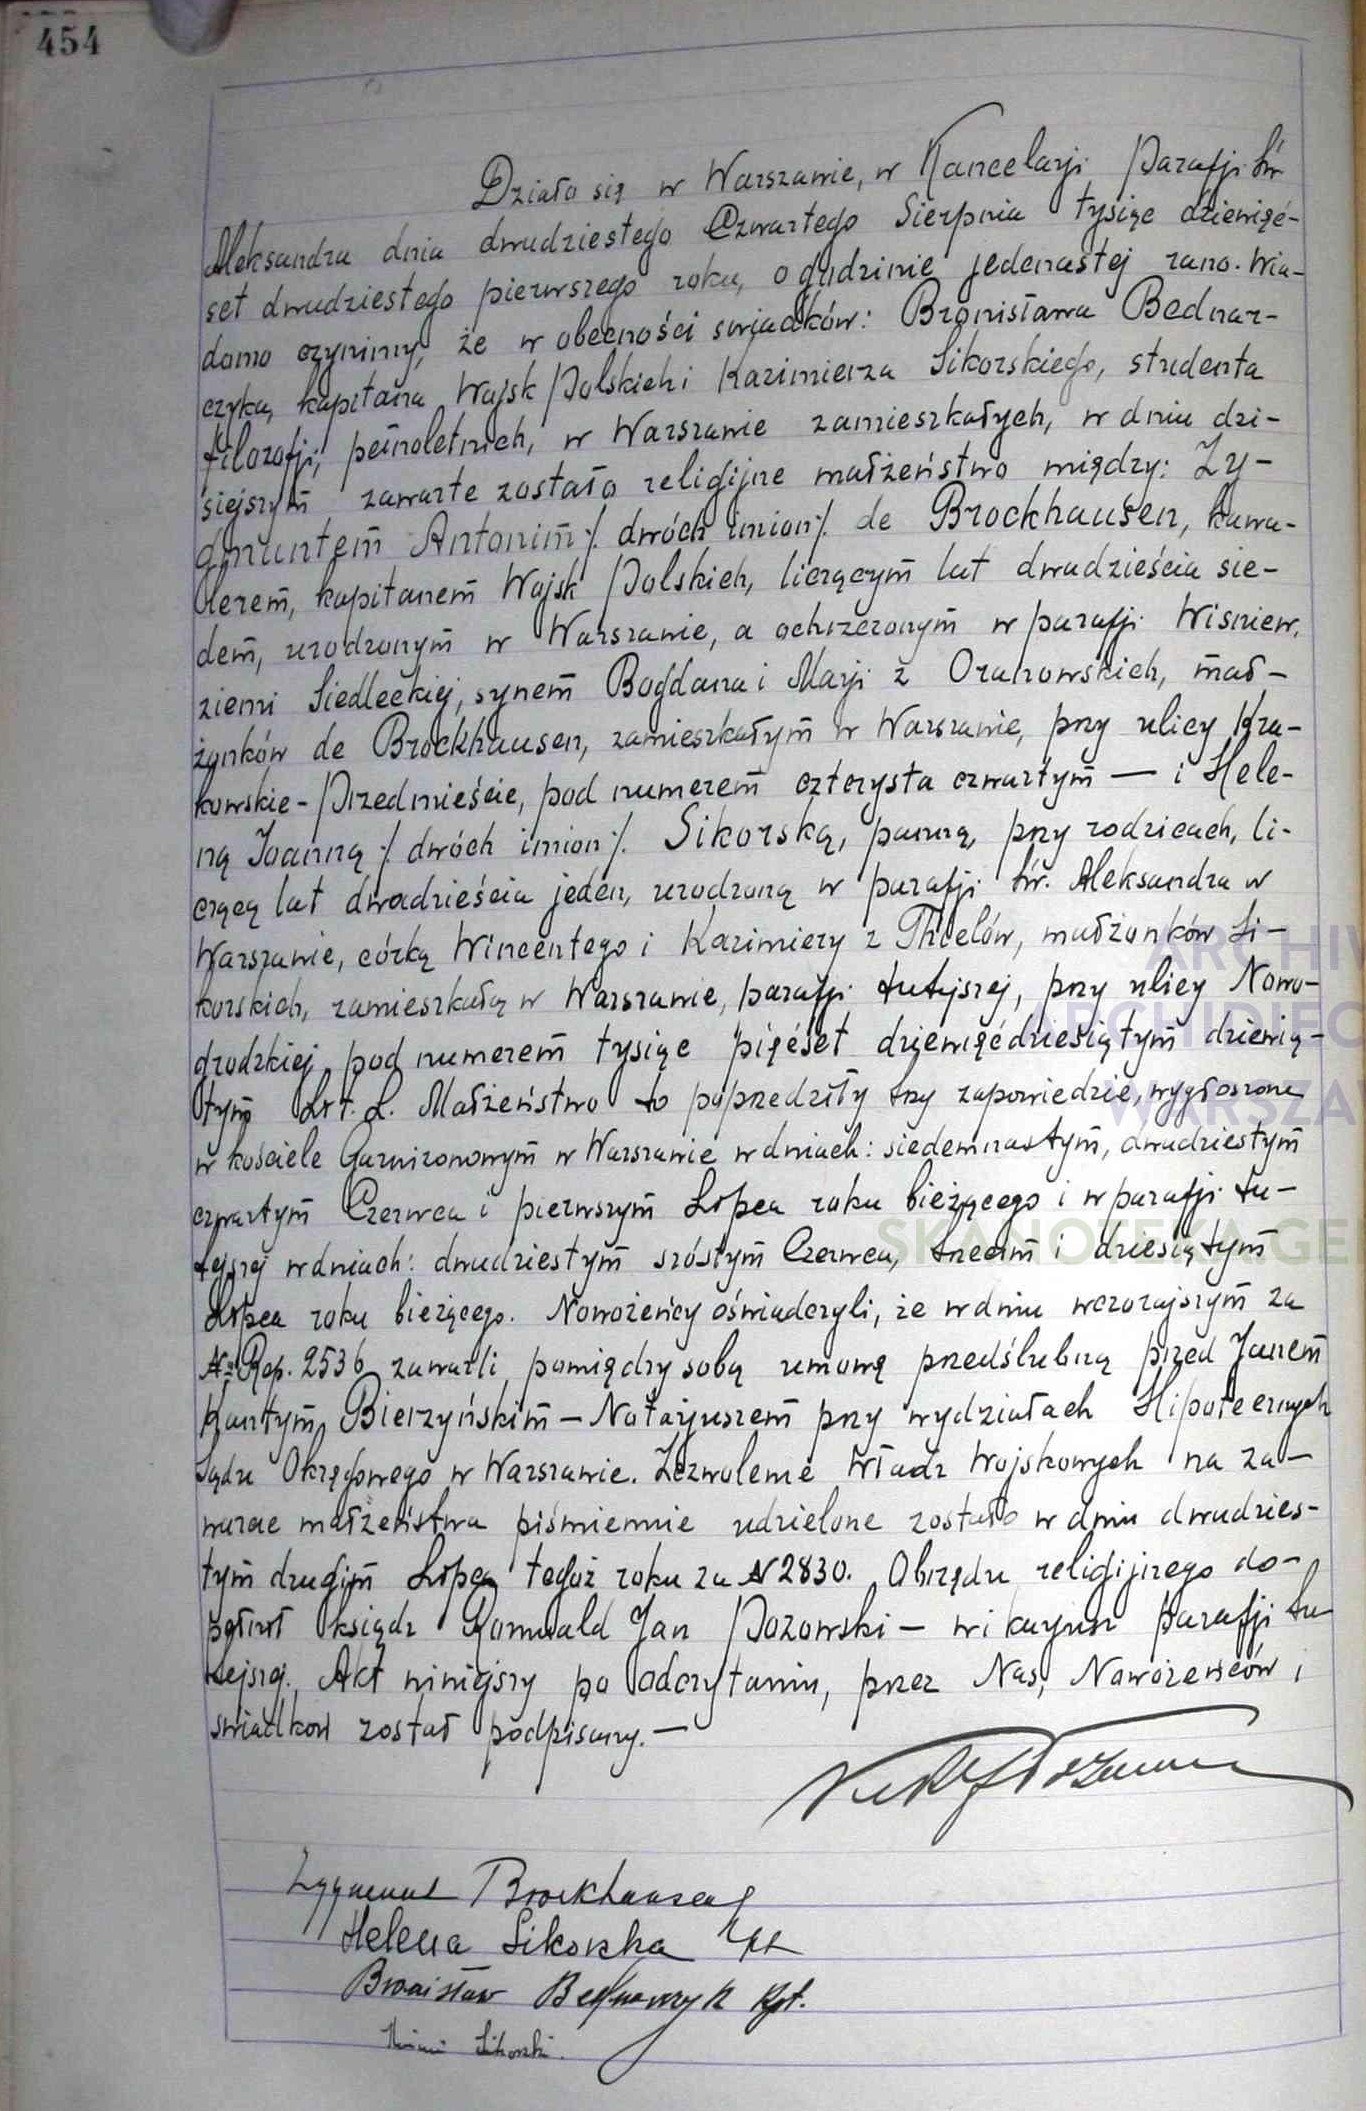 454
Działo się w Warszawie, w Kancelarji Parafji Św.
Aleksandra dnia dwudziestego Czwartego Sierpnia tysiąc dziewięć-
set dwudziestego pierwszego roku, o godzinie jedenastej rano. Wia-
domo czynimy, że w obecności świadków: Bronisława Bednar-
czyka, kapitana Wojsk Polskich i Kazimierza Sikorskiego, studenta
filozofji, pełnoletnich, w Warszawie zamieszkałych, w dniu dzi-
siejszym zawarte zostało religijne małżeństwo między: Zy-
gmuntem Antonim /. dwóch imion /. de Brockhausen, kawa-
lerem, kapitanem Wojsk Polskich, liczącym lat dwadzieścia sie-
dem, urodzonym w Warszawie, a ochrzczonym w parafji Wisniew,
ziemi Siedleckiej, synem Bogdana i Marji z Oranowskich, mał-
żonków de Brockhausen, zamieszkałym w Warszawie, przy ulicy Kra-
kowskie-Przedmieście, pod numerem czterysta czwartym — i Hele-
ną Joanną /. dwóch imion /. Sikorską, panną, przy rodzicach, li-
czącą lat dwadzieścia jeden, urodzoną w parafji Św. Aleksandra w
Warszawie, córką Wincentego i Kazimiery z Thielów, małżonków Si-
korskich, zamieszkałą w Warszawie, parafji tutejszej, przy ulicy Nowo-
grodzkiej pod numerem tysiąc pięćset dziewięćdziesiątym dziewią-
tym Lit. L. Małżeństwo to poprzedziły trzy zapowiedzie, wygłoszone
w kościele Garnizonowym w Warszawie w dniach: siedemnastym, dwudziestym
czwartym Czerwca i pierwszym Lipca roku bieżącego i w parafji tu-
tejszej w dniach: dwudziestym szóstym Czerwca, trzecim i dziesiątym
Lipca roku bieżącego. Nowożeńcy oświadczyli, że w dniu wczorajszym za
№ Rep. 2536 zawarli pomiędzy sobą umowę przedślubną przed Janem
Kantym Bierzyńskim — Notarjuszem przy wydziałach Hipotecznych
Sądu Okręgowego w Warszawie. Zezwolenie Władz Wojskowych na za-
warcie małżeństwa piśmiennie udzielone zostało w dniu dwudzies-
tym drugim Lipca tegoż roku za N 2830. Obrzędu religijnego do-
pełnił ksiądz Romuald Jan Pozowski — wikarjusz parafji tu-
tejszej. Akt niniejszy po odczytaniu, przez Nas, Nowożeńców i
świadków został podpisany. —
Zygmunt Brockhausen
Helena Sikorska kpt
Bronisław Bednarczyk kpt.
Sikorski.
ARCHIW
ARCHIDIEC
WARSZA
SKANOTEKA.GE